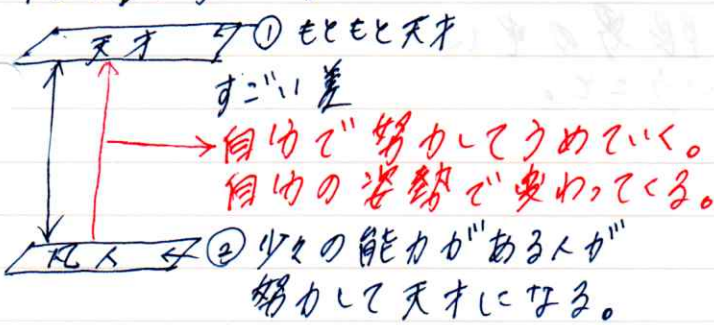 天才 ① もともと天才
すごい差
自分で努力してうめていく。
自分の姿勢で変わってくる。
凡人 ② 少々の能力がある人が
努力して天才になる。